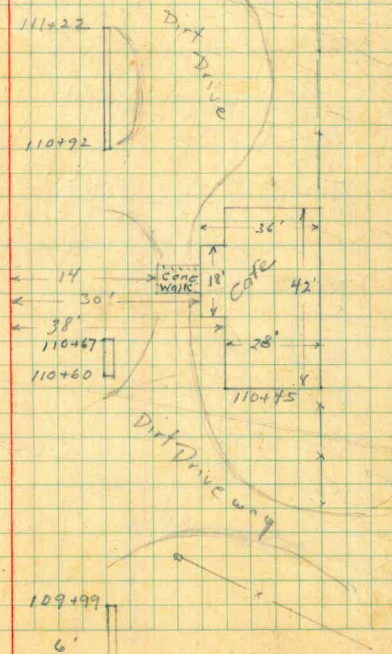 111+22
Dirt
Drive
110+92
36'
14
Conc
Walk
18'
Cafe
42'
30'
38'
110+67
28'
110+60
110+45
Dirt Drive way
109+99
6'